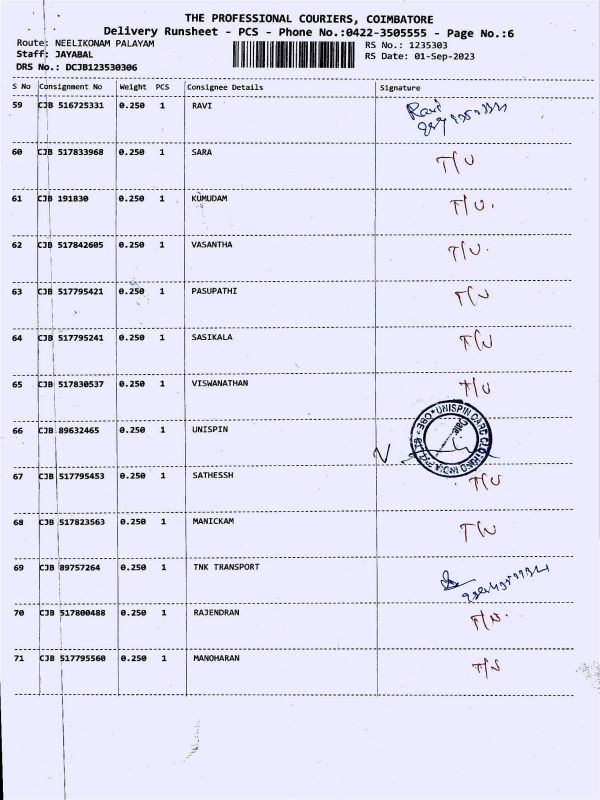 THE PROFESSIONAL COURIERS, COIMBATORE
Delivery Runsheet - PCS - Phone No.:0422-3505555 - Page No.:6
Route: NEELIKONAM PALAYAM RS No.: 1235303
Staff: JAYABAL RS Date: 01-Sep-2023
DRS No.: DCJB123530306
S No Consignment No Weight PCS Consignee Details Signature
59 CJB 516725331 0.250 1 RAVI Ravi
60 CJB 517833968 0.250 1 SARA T/U
61 CJB 191830 0.250 1 KUMUDAM T/U.
62 CJB 517842605 0.250 1 VASANTHA T/U.
63 CJB 517795421 0.250 1 PASUPATHI T/U
64 CJB 517795241 0.250 1 SASIKALA T/U
65 CJB 517830537 0.250 1 VISWANATHAN T/U
66 CJB 89632465 0.250 1 UNISPIN UNISPIN CARD CLOTHING
67 CJB 517795453 0.250 1 SATHESSH T/U
68 CJB 517823563 0.250 1 MANICKAM T/U
69 CJB 89757264 0.250 1 TNK TRANSPORT
70 CJB 517800488 0.250 1 RAJENDRAN
71 CJB 517795560 0.250 1 MANOHARAN